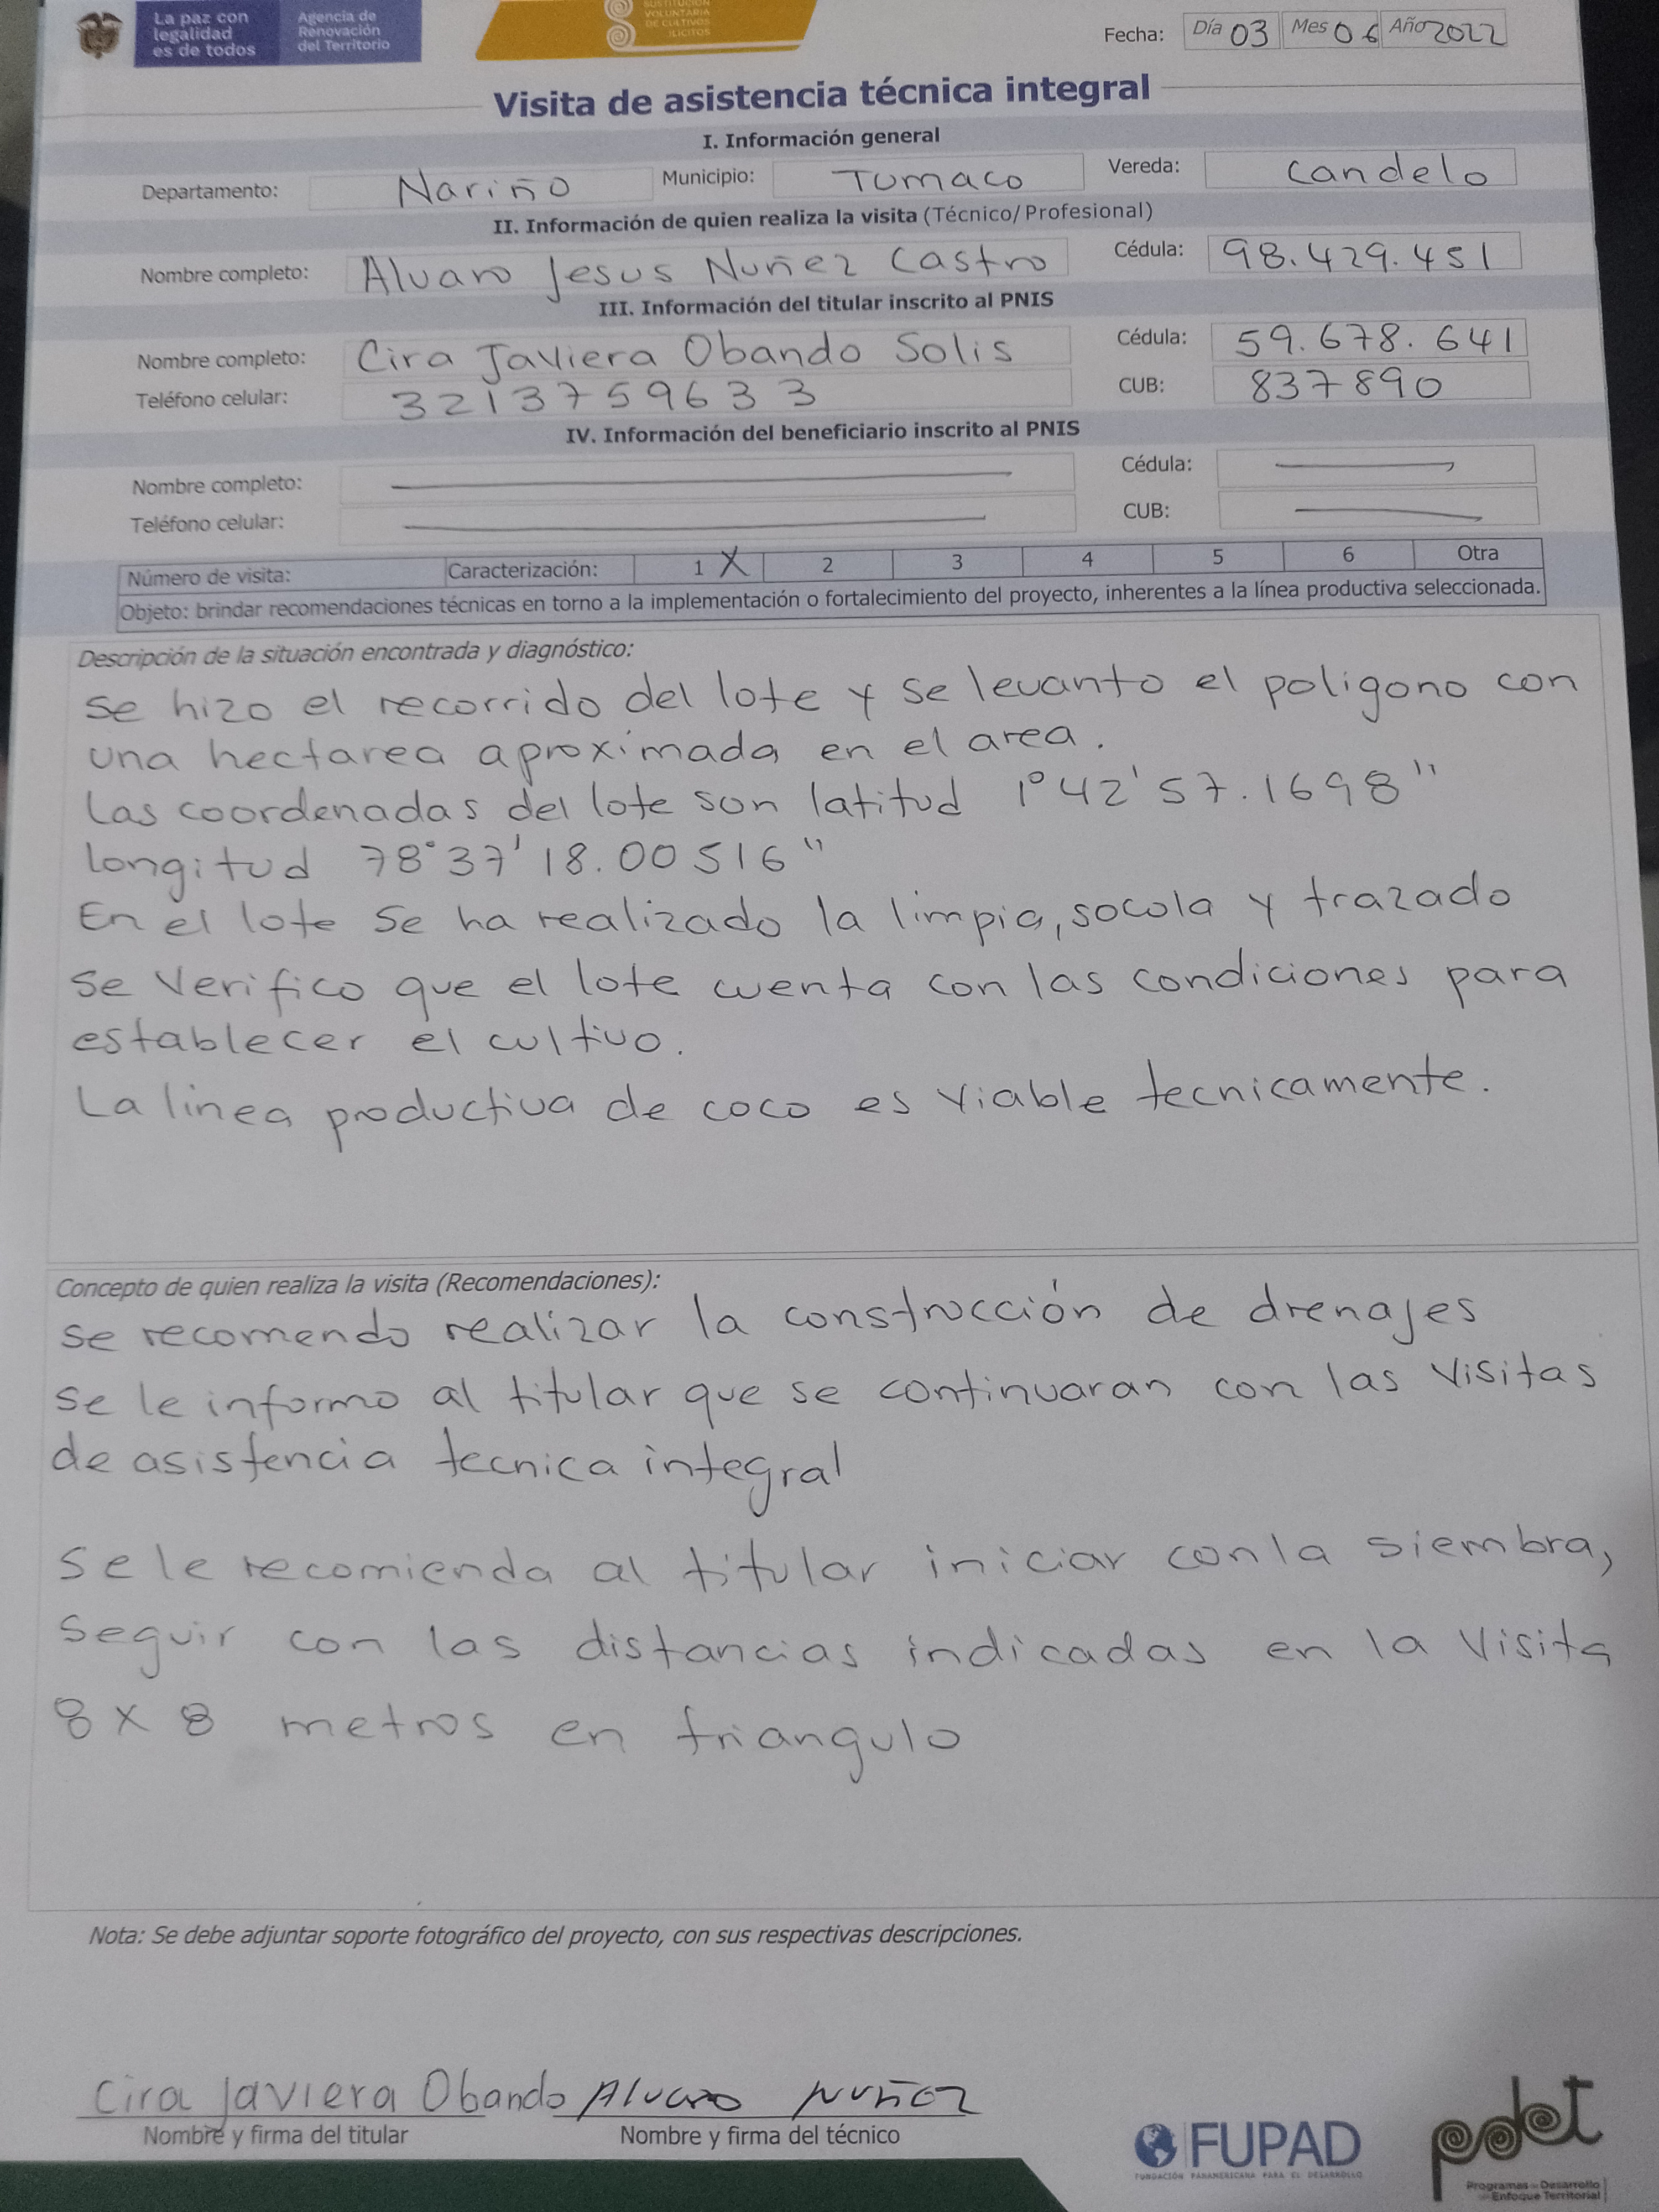 La paz con
legalidad
es de todos
Agencia de
Renovación
del Territorio
SUSTITUCIÓN
VOLUNTARIA
DE CULTIVOS
ILÍCITOS
Fecha: Día 03 Mes 06 Año 2022
Visita de asistencia técnica integral
I. Información general
Departamento: Nariño Municipio: Tumaco Vereda: Candelo
II. Información de quien realiza la visita (Técnico/Profesional)
Nombre completo: Alvaro Jesus Nuñez Castro Cédula: 98.429.451
III. Información del titular inscrito al PNIS
Nombre completo: Cira Javiera Obando Solis Cédula: 59.678.641
Teléfono celular: 3213759633 CUB: 837890
IV. Información del beneficiario inscrito al PNIS
Nombre completo: Cédula:
Teléfono celular: CUB:
Número de visita: Caracterización: 1 X 2 3 4 5 6 Otra
Objeto: brindar recomendaciones técnicas en torno a la implementación o fortalecimiento del proyecto, inherentes a la línea productiva seleccionada.
Descripción de la situación encontrada y diagnóstico:
se hizo el recorrido del lote y se levanto el poligono con
una hectarea aproximada en el area.
Las coordenadas del lote son latitud 1°42'57.1698"
longitud 78°37'18.00516"
En el lote se ha realizado la limpia, socola y trazado
se verifico que el lote cuenta con las condiciones para
establecer el cultivo.
La linea productiva de coco es viable tecnicamente.
Concepto de quien realiza la visita (Recomendaciones):
se recomendo realizar la construcción de drenajes
se le informo al titular que se continuaran con las visitas
de asistencia tecnica integral
se le recomienda al titular iniciar con la siembra,
seguir con las distancias indicadas en la visita
8 x 8 metros en triangulo
Nota: Se debe adjuntar soporte fotográfico del proyecto, con sus respectivas descripciones.
Cira Javiera Obando Alvaro Nuñez
Nombre y firma del titular Nombre y firma del técnico
FUPAD
FUNDACIÓN PANAMERICANA PARA EL DESARROLLO
pdet
Programas de Desarrollo
con Enfoque Territorial